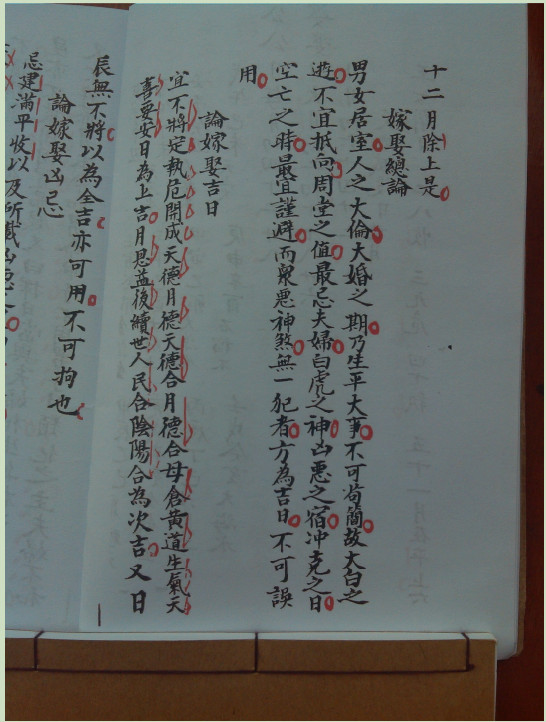 十二月除上是
嫁娶總論
男女居室人之大倫大婚之期乃生平大事不可苟簡故大白之
遊不宜抵向周堂之值最忌夫婦白虎之神凶惡之宿冲克之日
空亡之時最宜謹避而衆惡神煞無一犯者方為吉日不可誤
用
論嫁娶吉日
宜不將定執危開成天德月德天德合月德合母倉黃道生氣天
喜要安日為上吉月恩益後續世人民合陰陽合為次吉又日
辰無不將以為全吉亦可用不可拘也
論嫁娶凶忌
忌建滿平收以及所